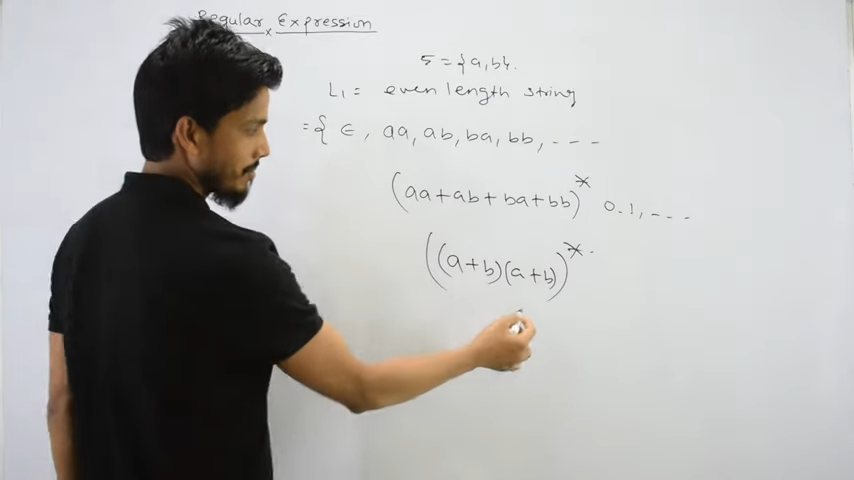 Regular Expression
Σ = {a,b}.
L₁ = even length string
= { ∈, aa, ab, ba, bb, - - -
(aa+ab+ba+bb)* 0.1, - - -
((a+b)(a+b))* .